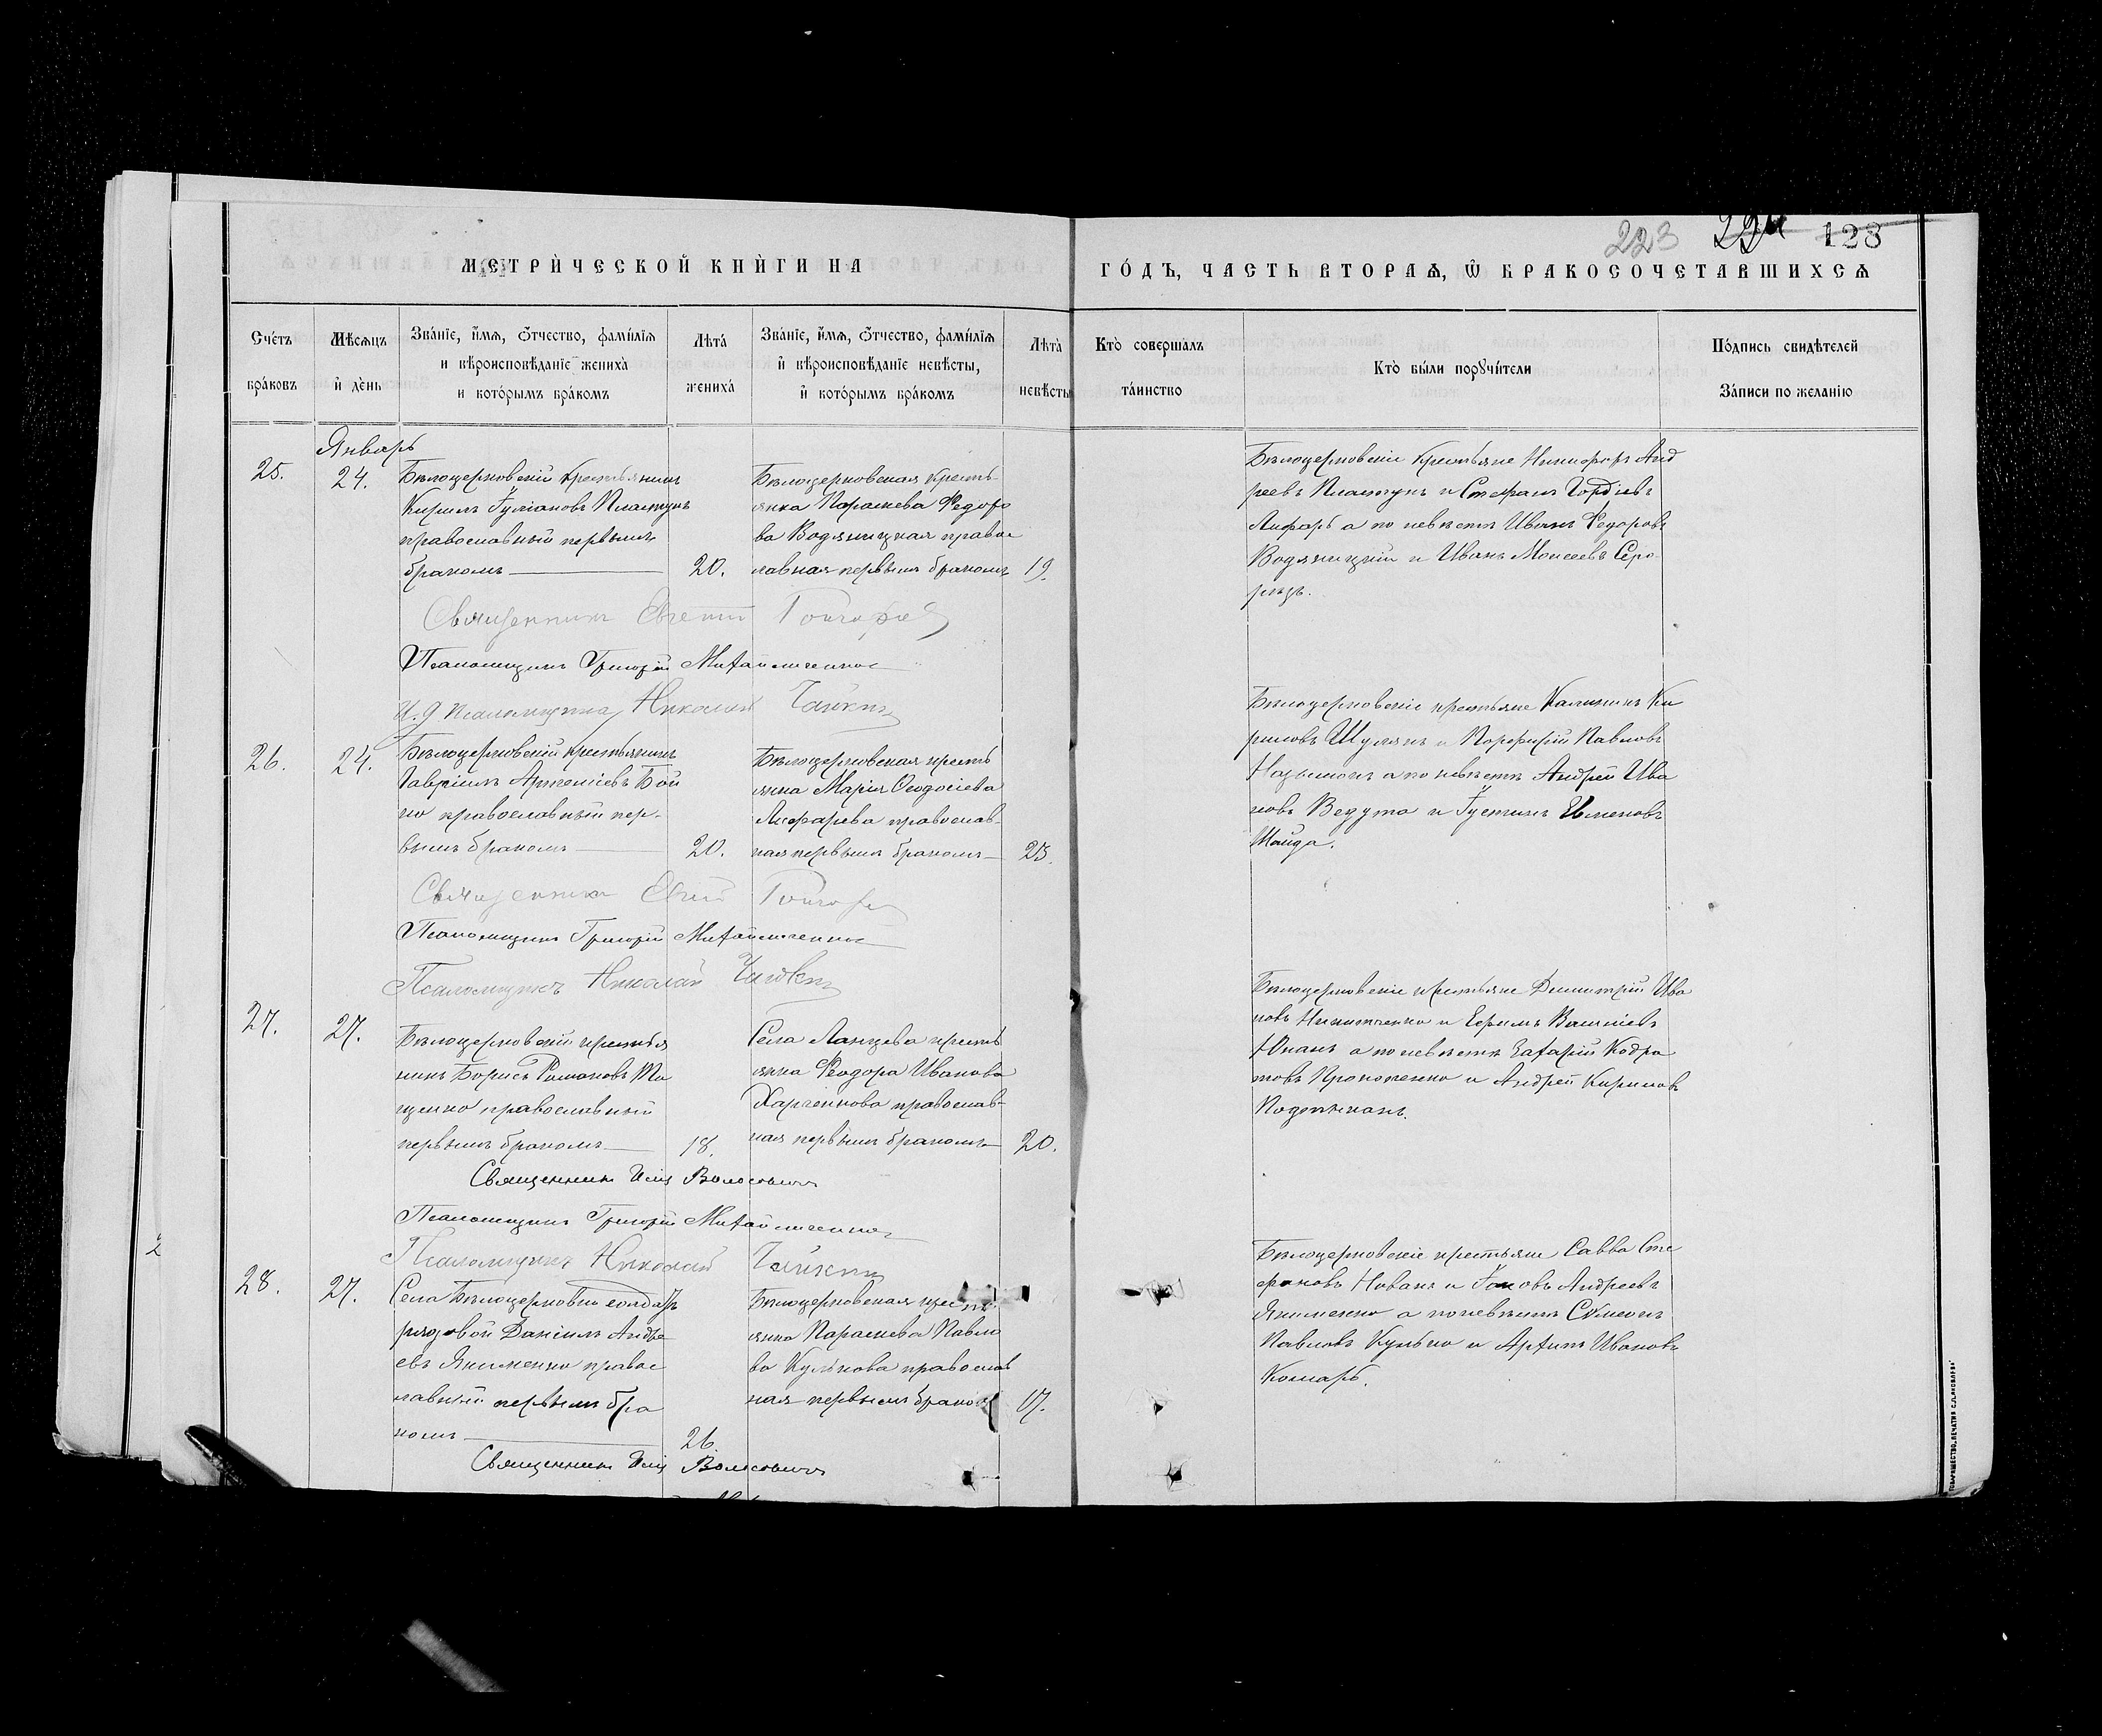 223 224 128
МЕТРИ́ЧЕСКОЙ КНИ́ГИ НА
ГО́ДЪ, ЧАСТЬ ВТОРАѦ, Ѡ҆ БРАКОСОЧЕТАВШИХСѦ
Сче́тъ бра́ковъ
Мѣ́сѧцъ и҆ де́нь
Зва́нїе, и҆́мѧ, ѻ҆́тчество, фами́лїѧ
и вѣроисповѣ́данїе жениха̀
и кото́рымъ бра́комъ
Лѣ́та жениха́
Зва́нїе, и҆́мѧ, ѻ҆́тчество, фами́лїѧ
и҆ вѣроисповѣ́данїе невѣ́сты,
и҆ кото́рымъ бра́комъ
Лѣ́та невѣ́сты
Кто̀ соверша́лъ
та́инство
Кто̀ бы́ли порꙋчи́тели
По́дпись свидѣ́телей
За́писи по жела́нїю
Январь
25. 24.
Бѣлоцерковскій крестьянинъ
Кирилъ Іуліановъ Пластунъ
православный первымъ
бракомъ 20.
Бѣлоцерковская кресть-
янка Параскева Федоро
ва Водяницкая правос
лавная первымъ бракомъ 19.
Бѣлоцерковскіе крестьяне Никифоръ Анд
реевъ Пластунъ и Стефанъ Гордіевъ
Лифарь а по невѣстѣ Иванъ Федоровъ
Водяницкій и Иванъ Моисеевъ Серо-
Священникъ Евгеній
Псаломщикъ Григорій Михайличенко
И. д. псаломщика Николай
26. 24.
Бѣлоцерковскій крестьянинъ
Гавріилъ Артеміевъ Бой
ко православный пер-
вымъ бракомъ 20.
Бѣлоцерковская кресть
янка Марія Феодосіева
Лифарева православ-
ная первымъ бракомъ 23.
Бѣлоцерковскіе крестьяне Калиникъ Ки
риловъ Шулякъ и Порфирій Павловъ
а по невѣстѣ Андрей Ива
новъ Ведута и Іустинъ
Шайда.
Священникъ
Псаломщикъ Григорій Михайличенко
Псаломщикъ Николай
27. 27.
Бѣлоцерковскій крестья
нинъ Борисъ Романовъ
православный
первымъ бракомъ 18.
Села Ланцева кресть
янка Феодора Иванова
Харченкова православ-
ная первымъ бракомъ 20.
Бѣлоцерковскіе крестьяне Димитрій Ива
новъ Никитченко и Ефимъ Василіевъ
а по невѣстѣ Захарій Кодра
товъ Прокопенко и Андрей Кириловъ
Священникъ Илія Волосовичъ
Псаломщикъ Григорій Михайличенко
Псаломщикъ Николай
28. 27.
Села Бѣлоцерковки солдатъ
рядовой Даніилъ Андре
евъ Якименко правос
лавный первымъ бра
комъ 26.
Бѣлоцерковская крестья
янка Параскева Павло
ва Кулькова православ
ная первымъ бракомъ 17.
Бѣлоцерковскіе крестьяне Савва Сте
фановъ Новакъ и Іаковъ Андреевъ
Якименко а по невѣстѣ Сѵмеонъ
Павловъ Кулько и Архипъ Ивановъ
Комаръ.
Священникъ Илія Волосовичъ